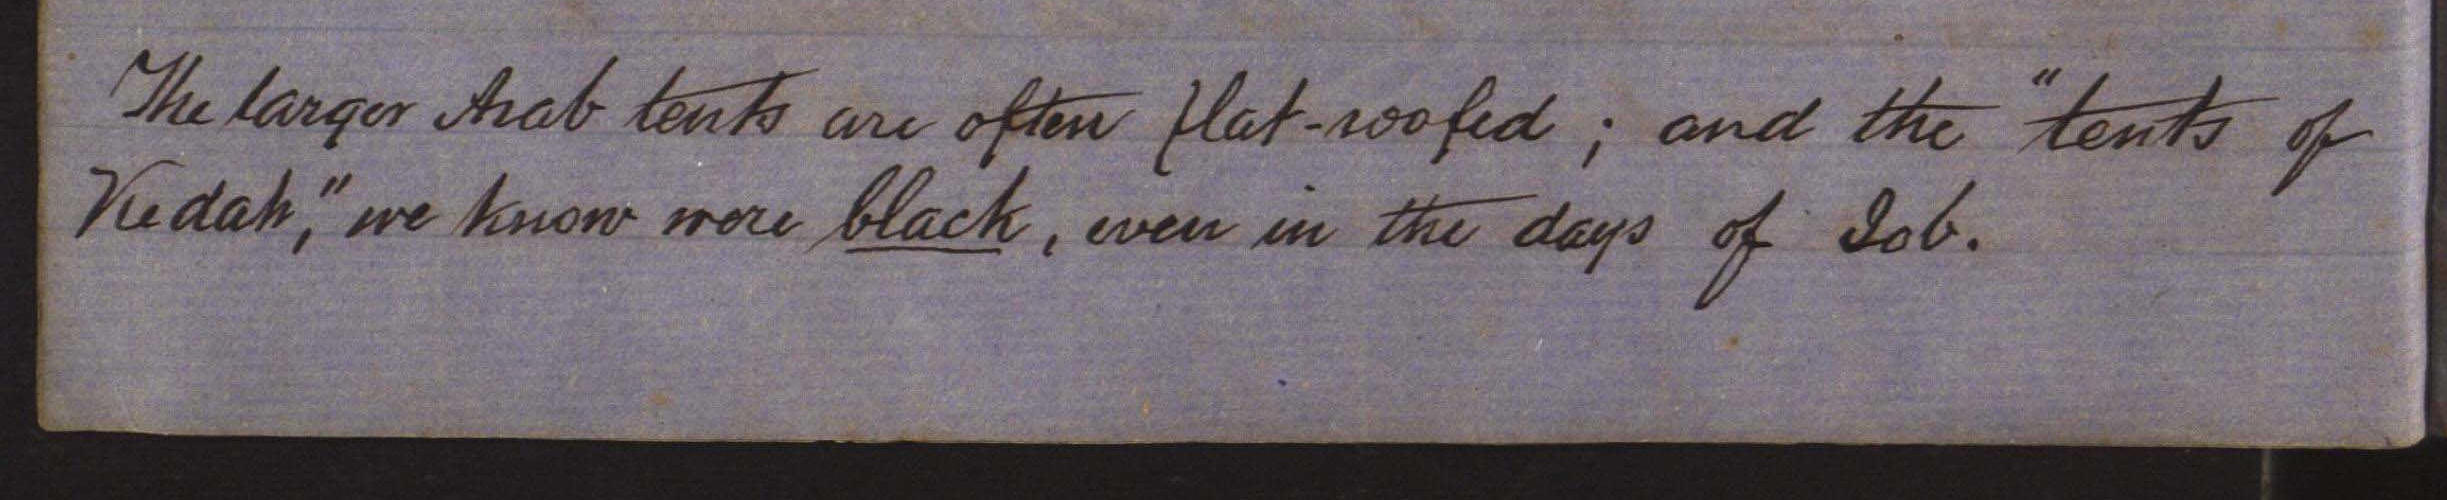 The larger Arab tents are often flat-roofed; and the "tents of
Kedah," we know were black, even in the days of Job.